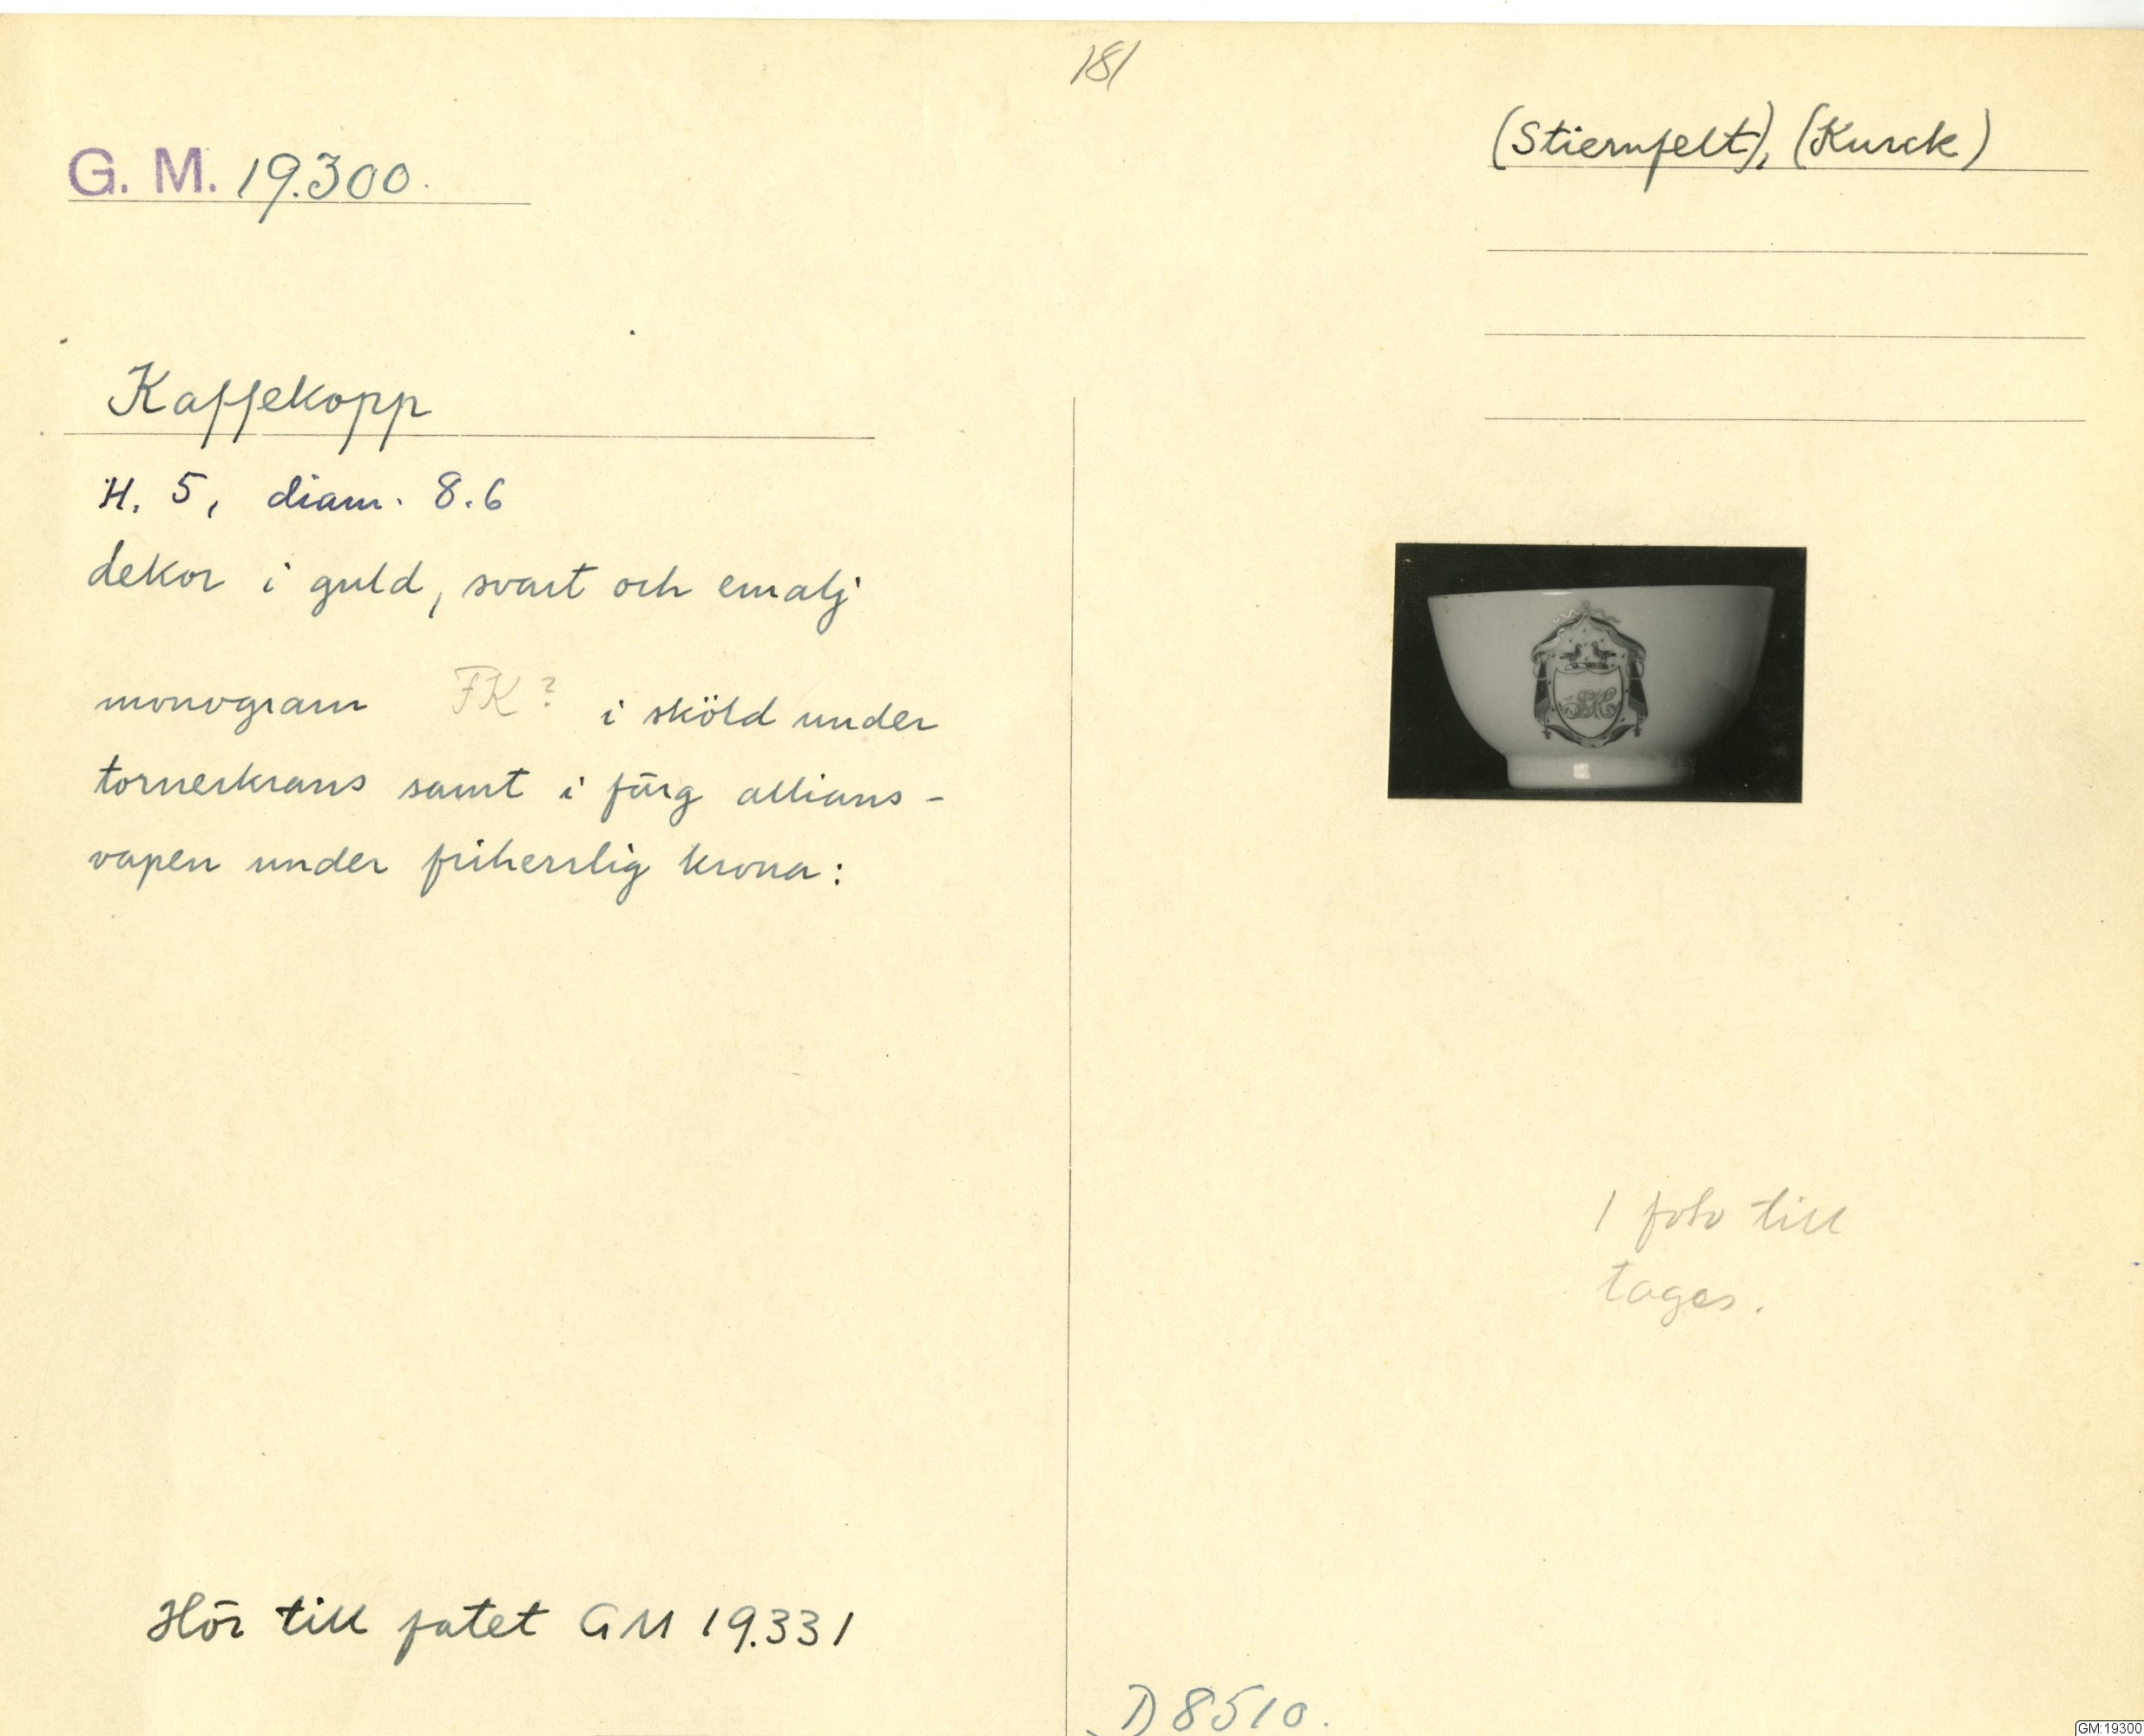 181
G. M. 19.300.
(Stiernfelt), (Kurck)
Kaffekopp
H. 5, diam. 8.6
dekor i guld, svart och emalj
monogram FK? i sköld under
tornerkrans samt i färg allians-
vapen under friherrlig krona:
1 foto till
tages.
Hör till fatet GM 19.331
D 8510.
GM:19300